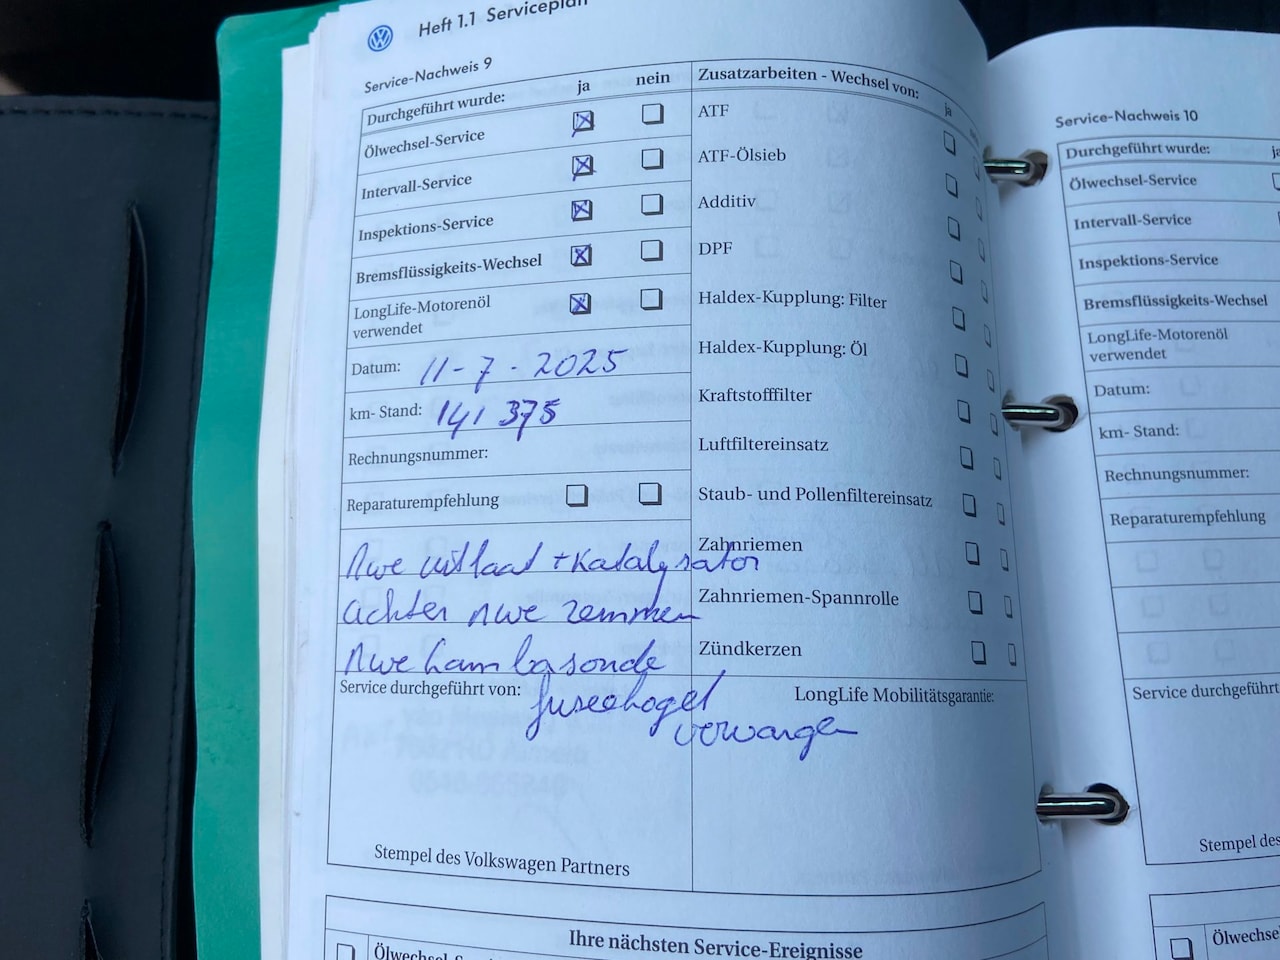 Heft 1.1 Serviceplan
Service-Nachweis 9
Durchgeführt wurde: ja nein
Ölwechsel-Service
Intervall-Service
Inspektions-Service
Bremsflüssigkeits-Wechsel
LongLife-Motorenöl
verwendet
Datum: 11-7-2025
km- Stand: 141 375
Rechnungsnummer:
Reparaturempfehlung
Nwe uitlaat + Katalysator
achter nwe remmen
Nwe lambasonde
fuseekogel
vervangen
Service durchgeführt von:
Stempel des Volkswagen Partners
Zusatzarbeiten - Wechsel von: ja
ATF
ATF-Ölsieb
Additiv
DPF
Haldex-Kupplung: Filter
Haldex-Kupplung: Öl
Kraftstofffilter
Luftfiltereinsatz
Staub- und Pollenfiltereinsatz
Zahnriemen
Zahnriemen-Spannrolle
Zündkerzen
LongLife Mobilitätsgarantie:
Ihre nächsten Service-Ereignisse
Service-Nachweis 10
Durchgeführt wurde: ja
Ölwechsel-Service
Intervall-Service
Inspektions-Service
Bremsflüssigkeits-Wechsel
LongLife-Motorenöl
verwendet
Datum:
km- Stand:
Rechnungsnummer:
Reparaturempfehlung
Service durchgeführt
Stempel des